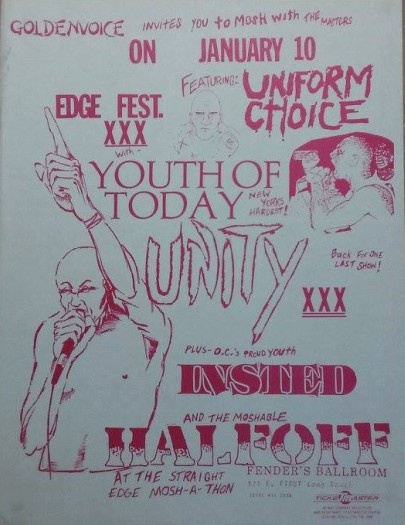 GOLDENVOICE INVITES YOU to MOSH WITH THE MASTERS
ON JANUARY 10
FEATURING: UNIFORM CHOICE
EDGE FEST.
XXX
with-
YOUTH OF TODAY
NEW YORKS HARDEST!
UNITY
Back FOR ONE LAST SHOW!
XXX
PLUS- O.C.'s PROUD YOUTH
INSTED
AND THE MOSHABLE
HALFOFF
AT THE STRAIGHT EDGE MOSH-A-THON
FENDER'S BALLROOM
FIRST LONG
TICKETMASTER